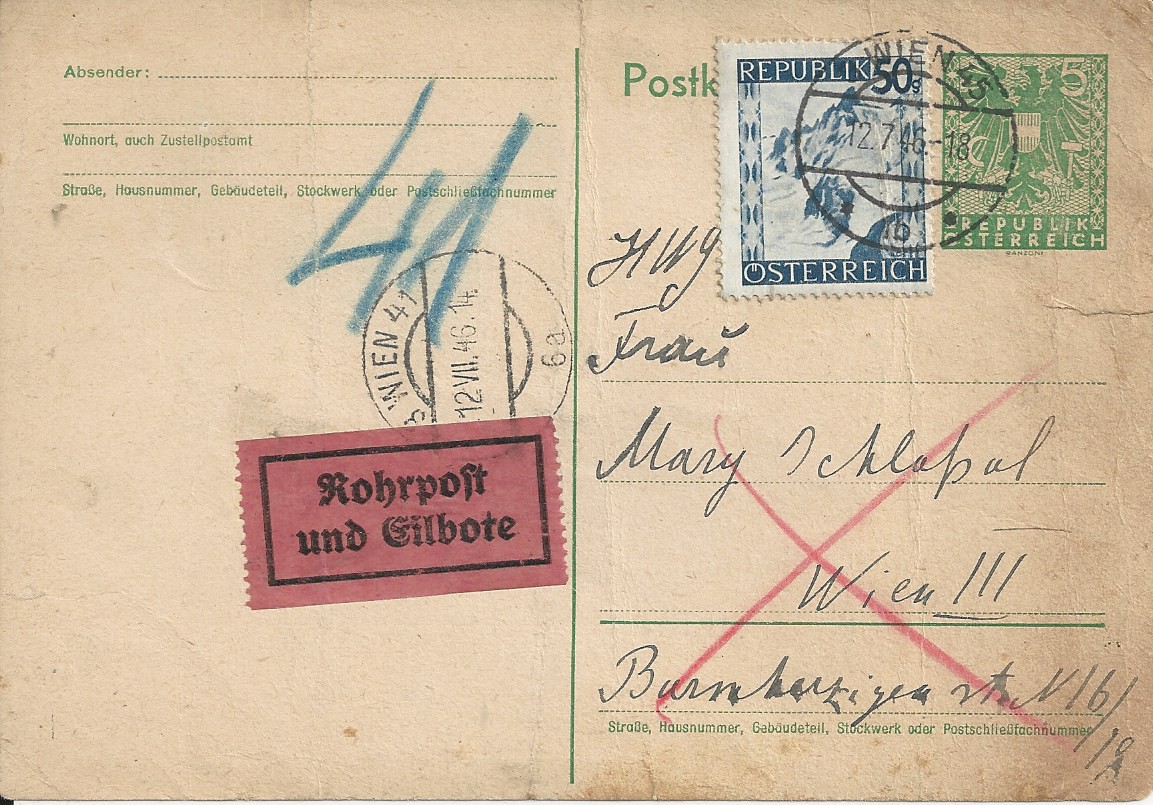 Absender:
Wohnort, auch Zustellpostamt
Straße, Hausnummer, Gebäudeteil, Stockwerk oder Postschließfachnummer
41
WIEN 41
12·VII.46.14
6a
Rohrpost
und Eilbote
Postk
REPUBLIK 50g
ÖSTERREICH
WIEN 45
12.7.46.-18
1b
5
REPUBLIK
ÖSTERREICH
RANZONI
Frau
Mary
Wien III
N 16/
Straße, Hausnummer, Gebäudeteil, Stockwerk oder Postschließfachnummer